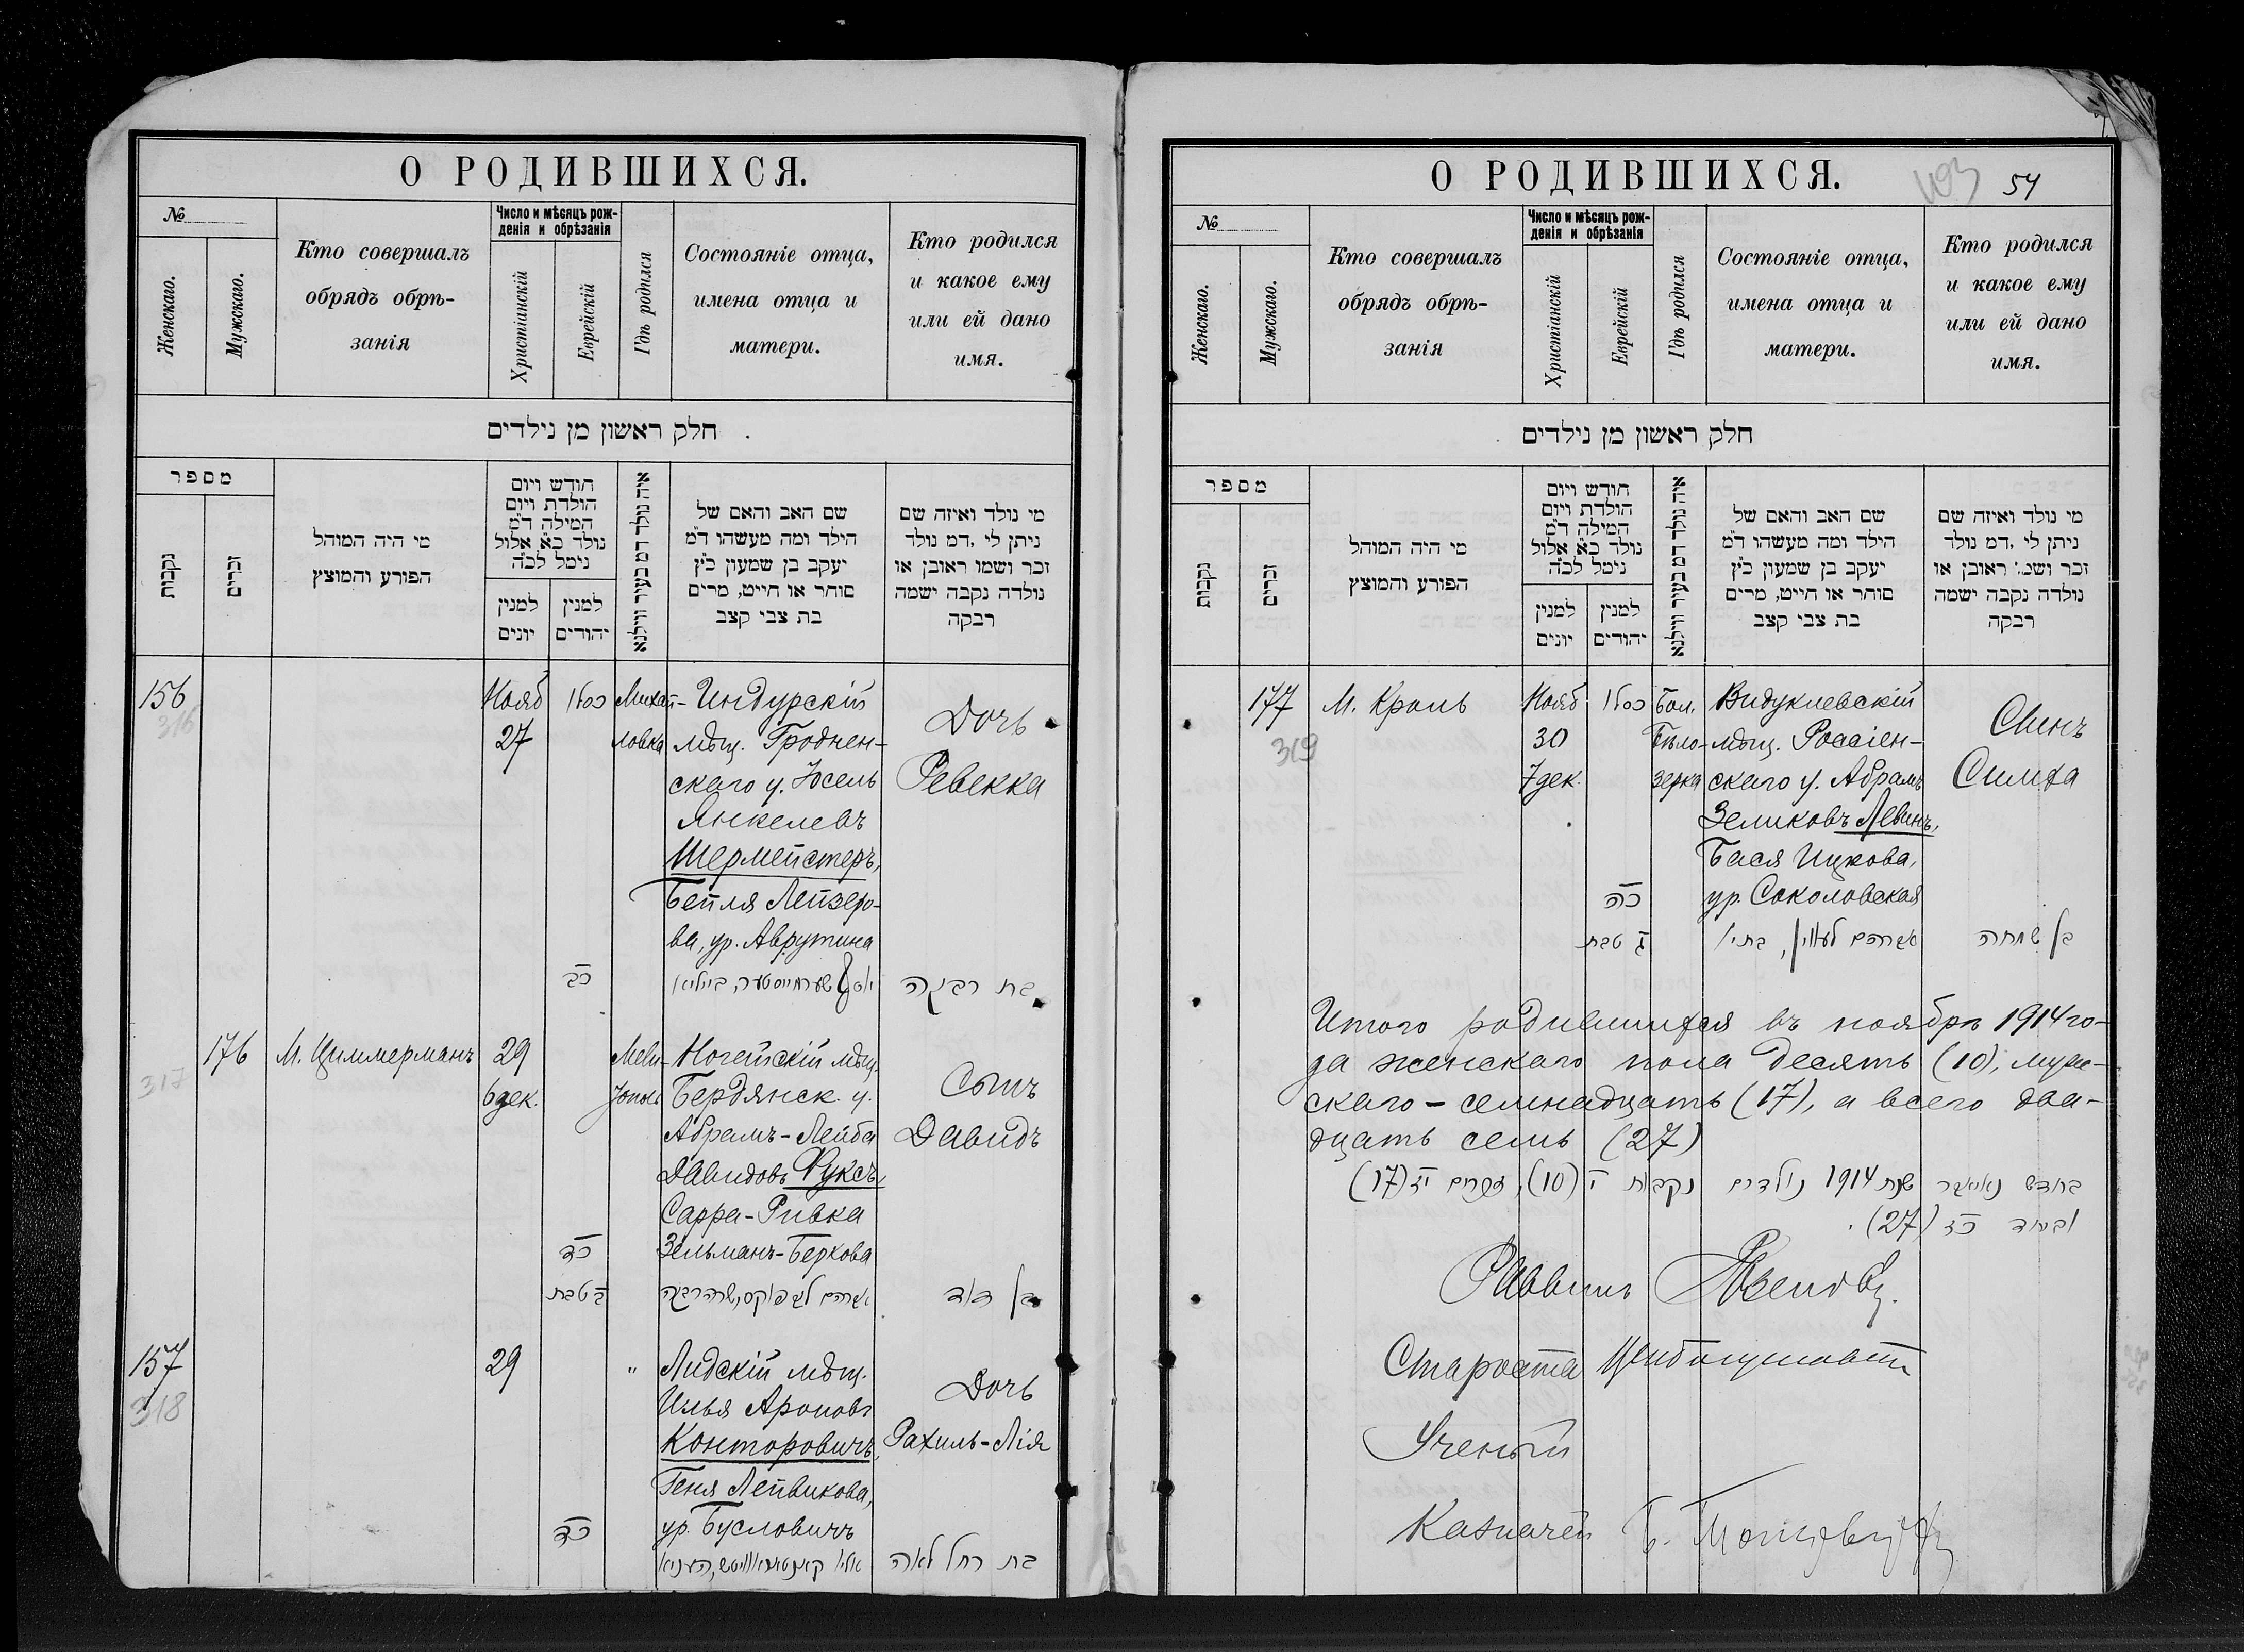 О РОДИВШИХСЯ.
№
Женскаго.
Мужскаго.
Кто совершалъ
обрядъ обрѣ-
занія
Число и мѣсяцъ рож-
денія и обрѣзанія
Христіанскій
Еврейскій
Гдѣ родился
Состояніе отца,
имена отца и
матери.
Кто родился
и какое ему
или ей дано
имя.
חלק ראשון מן נילדים
מספר
נקבות
זכרים
מי היה המוהל
הפורע והמוצץ
חודש ויום
הולדת ויום
המילה ד״מ
נולד כ״א אלול
נימל לכ״ה
למנין
יונים
למנין
יהודים
איה נולד דמ בעיר ווילנא
שם האב והאם של
הילד ומה מעשהו ד״מ
יעקב בן שמעון כ״ץ
סוחר או חייט, מרים
בת צבי קצב
מי נולד ואיזה שם
ניתן לי ,דמ נולד
זכר ושמו ראובן או
נולדה נקבה ישמה
רבקה
156
316
Нояб
27
כסלו
Михай-
ловка
Индурскій
мѣщ. Гроднен-
скаго у. Юсель
Янкелевъ
Шермейстеръ,
Бейля Лейзеро-
ва, ур. Аврутина
Дочь
Ревекка
כב
יוסף שערמייסטער, ביילא
בת רבקה
176
317
М. Циммерманъ
29
6 дек.
Мели-
тополь
Ногейскій мѣщ.
Бердянск. у.
Абрамъ-Лейба
Давидовъ Фуксъ,
Сарра-Ривка
Зельманъ-Беркова
Сынъ
Давидъ
כד
ב טבת
אברהם ליב פוקס, שרה רבקה
בן דוד
157
318
29
"
Лидскій мѣщ.
Илья Ароновъ
Канторовичъ,
Геня Лейвикова,
ур. Бусловичъ
Дочь
Рахиль-Лія
כד
בת רחל לאה
О РОДИВШИХСЯ.
54
№
Женскаго.
Мужскаго.
Кто совершалъ
обрядъ обрѣ-
занія
Число и мѣсяцъ рож-
денія и обрѣзанія
Христіанскій
Еврейскій
Гдѣ родился
Состояніе отца,
имена отца и
матери.
Кто родился
и какое ему
или ей дано
имя.
חלק ראשון מן נילדים
מספר
נקבות
זכרים
מי היה המוהל
הפורע והמוצץ
חודש ויום
הולדת ויום
המילה ד״מ
נולד כ״א אלול
נימל לכ״ה
למנין
יונים
למנין
יהודים
איה נולד דמ בעיר ווילנא
שם האב והאם של
הילד ומה מעשהו ד״מ
יעקב בן שמעון כ״ץ
סוחר או חייט, מרים
בת צבי קצב
מי נולד ואיזה שם
ניתן לי ,דמ נולד
זכר ושמ' ראובן או
נולדה נקבה ישמה
רבקה
177
319
М. Кроль
Нояб
30
7 дек.
כסלו
Бол.
Бѣло-
зерка
Видуклевскій
мѣщ. Россіен-
скаго у. Абрамъ
Зеликовъ Левинъ,
Бася Ицкова,
ур. Соколовская
Сынъ
Симха
כה
ג טבת
אברהם לעווין, בתיא
בן שמחה
Итого родившихся въ ноябрѣ 1914 го-
да женскаго пола десять (10), муж-
скаго – семнадцать (17), а всего два-
дцать семь (27)
בחודש נאיאבר שנת 1914 נולדים נקבות י (10), זכרים יז (17)
וביחד כז (27).
Раввинъ
Староста
Ученый
Казначей